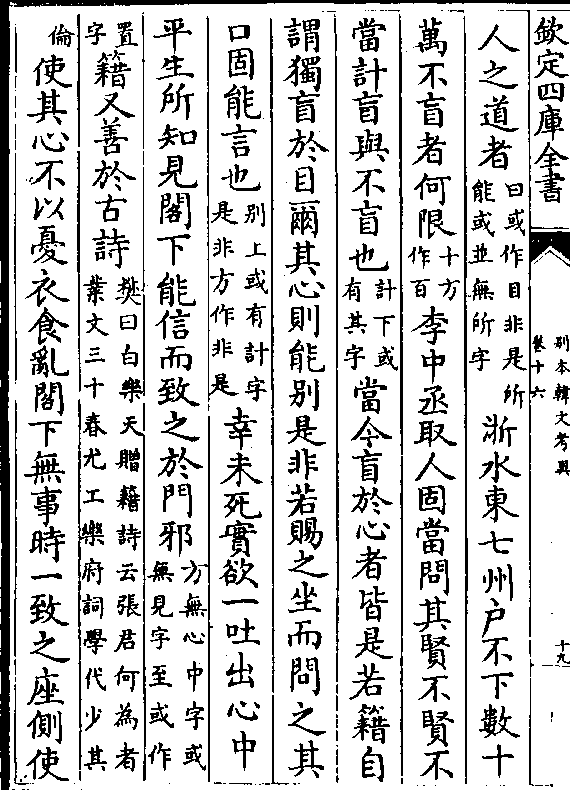 欽定四庫全書
别本韓文考異
卷十六
十九
人之道者曰或作目非是所能或並無所字浙水東七州户不下數十
萬不盲者何限十方作百李中丞取人固當問其賢不賢不
當計盲與不盲也計下或有其字當今盲於心者皆是若籍自
謂獨盲於目爾其心則能别是非若賜之坐而問之其
口固能言也别上或有計字是非方作非是幸未死實欲一吐出心中
平生所知見閤下能信而致之於門邪方無心中字或無見字至或作
置字籍又善於古詩樊曰白樂天贈籍詩云張君何為者業文三十春尤工樂府詞學代少其
倫使其心不以憂衣食亂閤下無事時一致之座側使